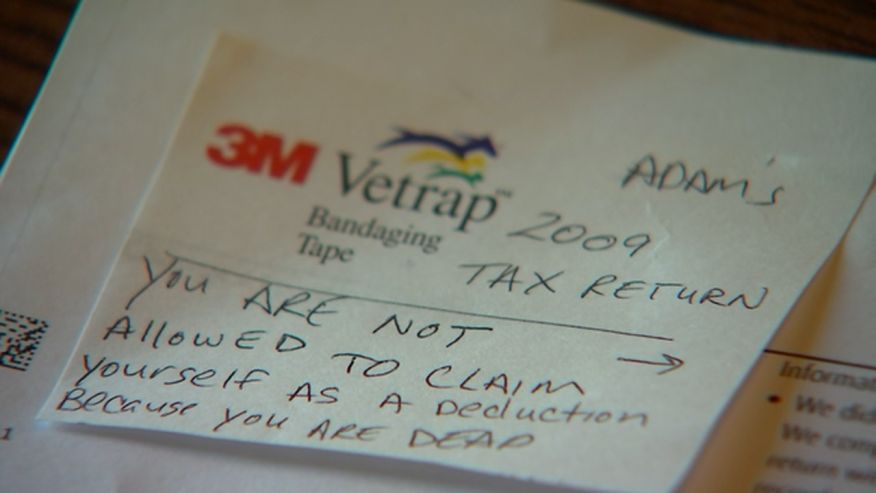 3M Vetrap™
Bandaging
Tape
ADAM'S
2009
TAX RETURN
YOU ARE NOT
AllOWED TO CLAIM →
yourself AS A Deduction
Because you ARE DEAD
1
Informat
• We did
We comp
return wi